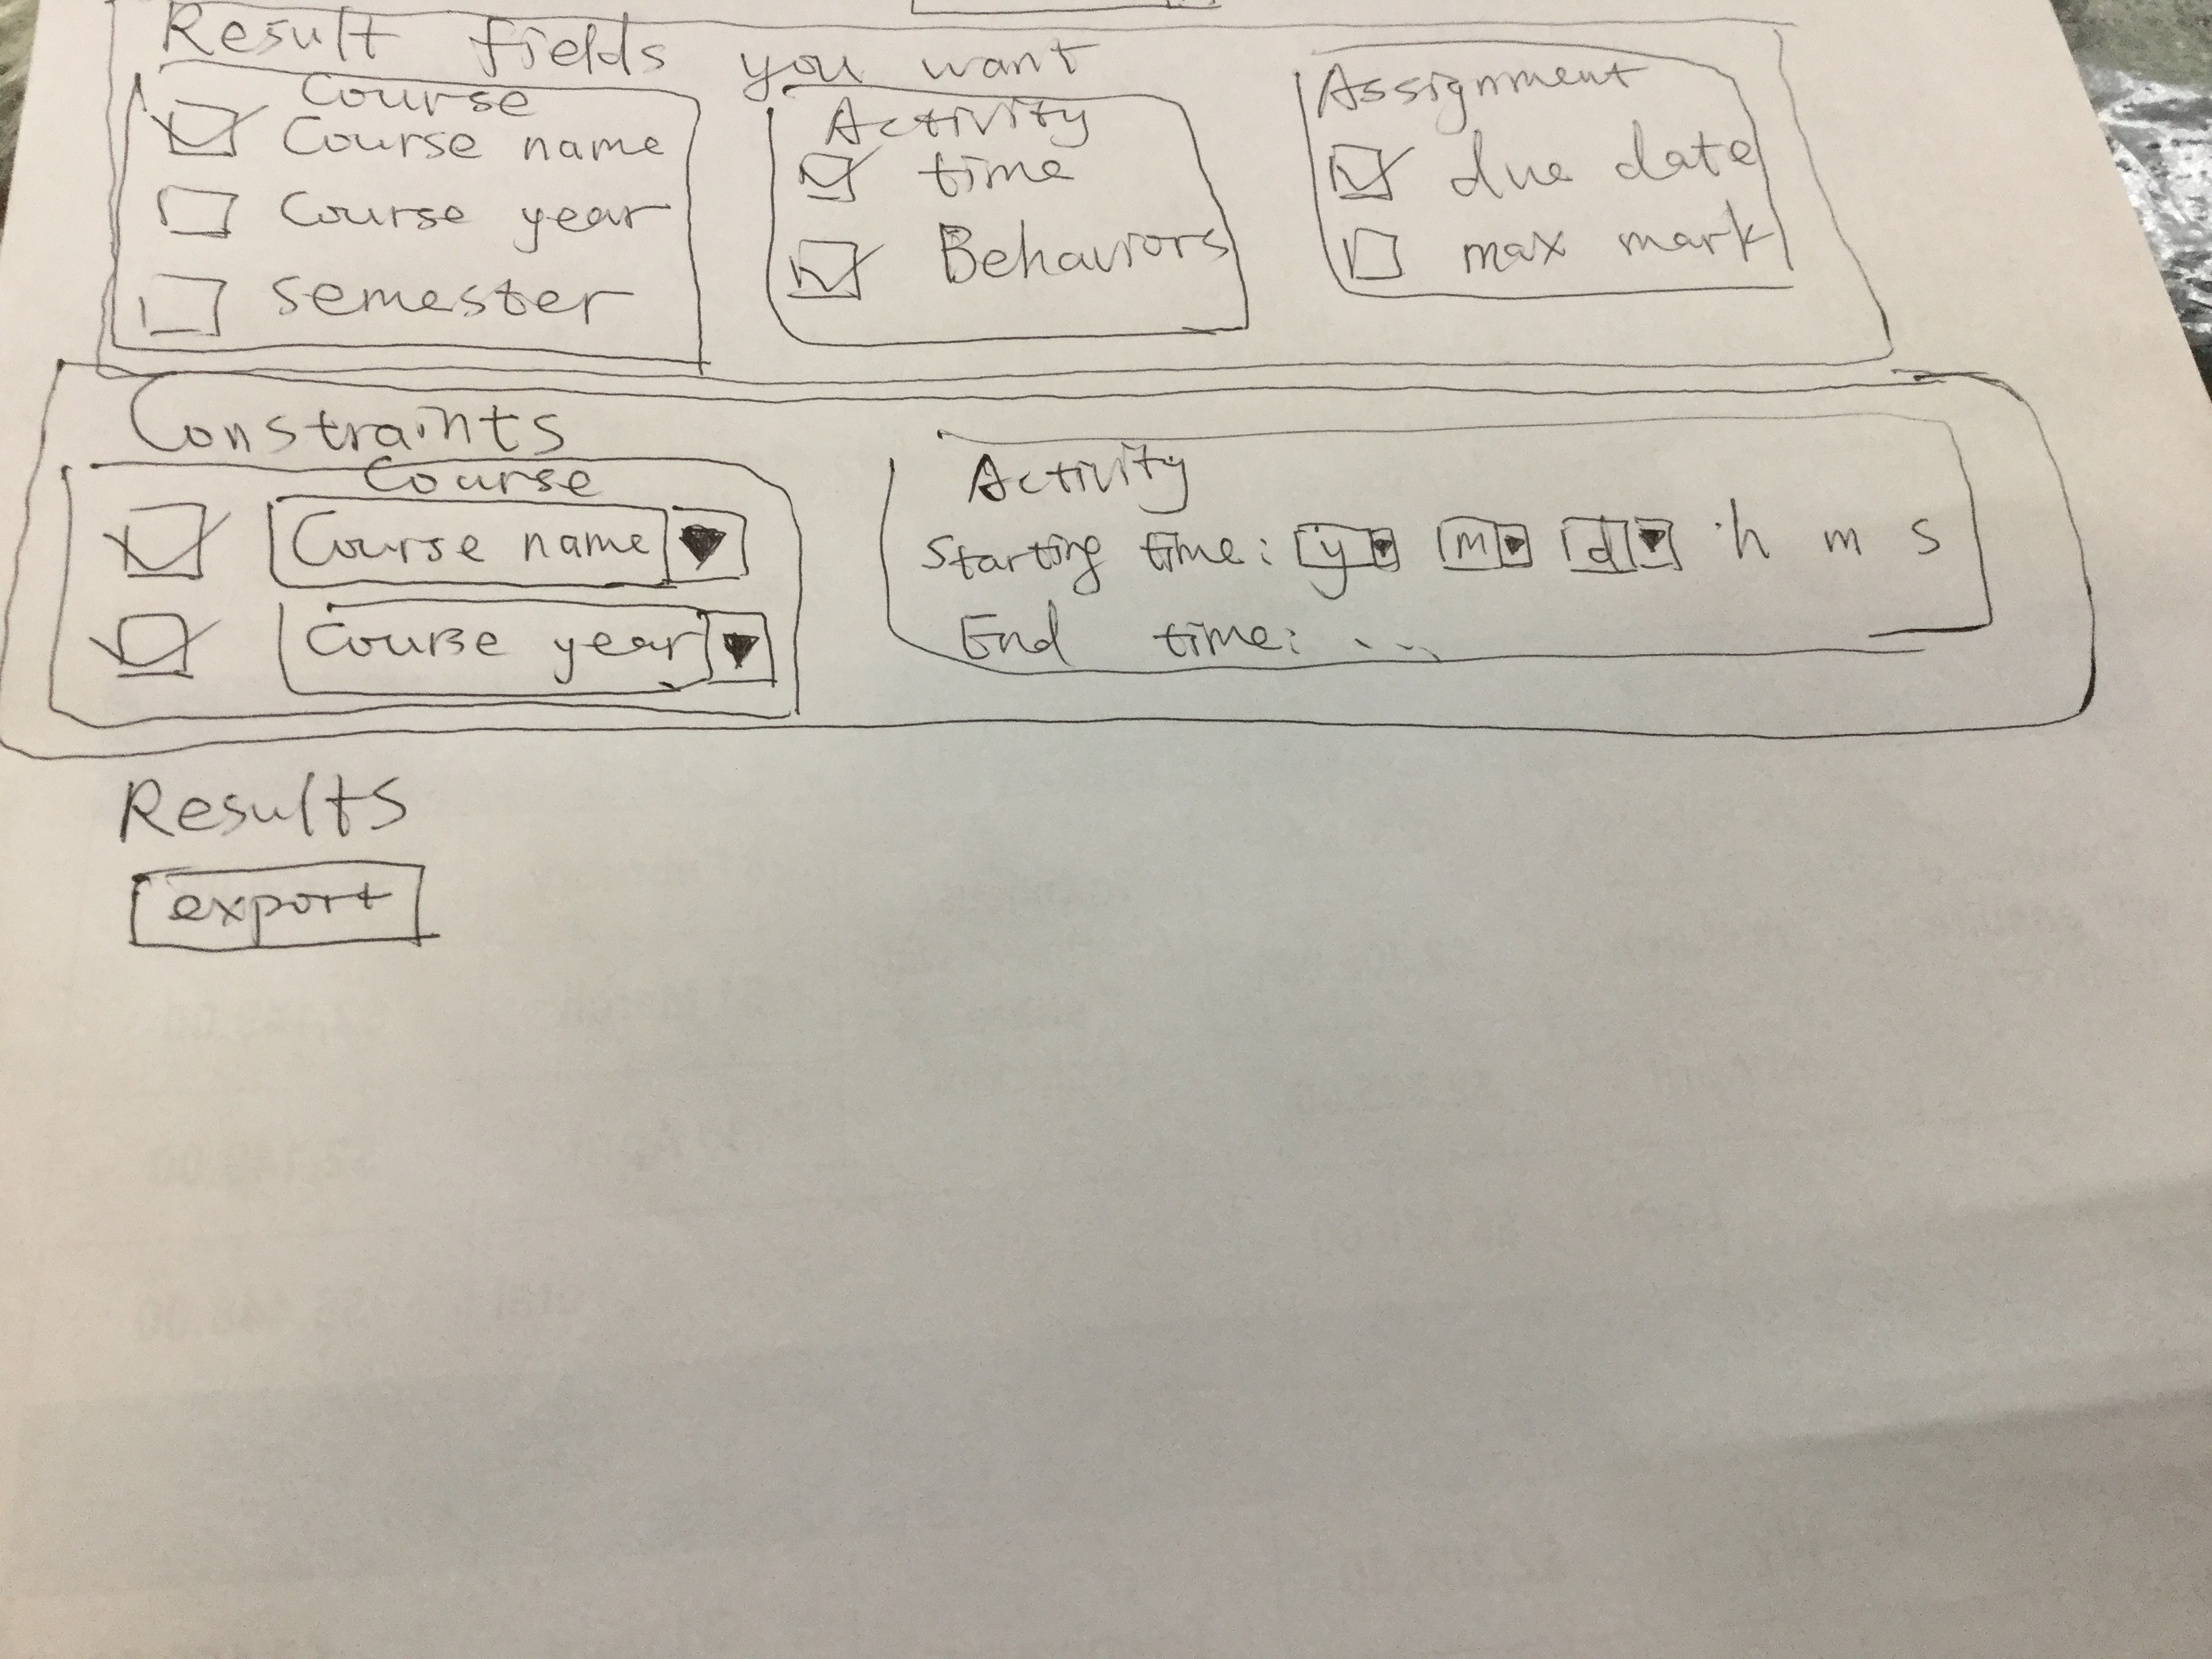 Result fields you want
Course
Course name
Course year
semester
Activity
time
Behaviors
Assignment
due date
max mark
Constraints
Course
Course name
Course year
Activity
Starting time: y m d h m s
End time: ...
Results
export